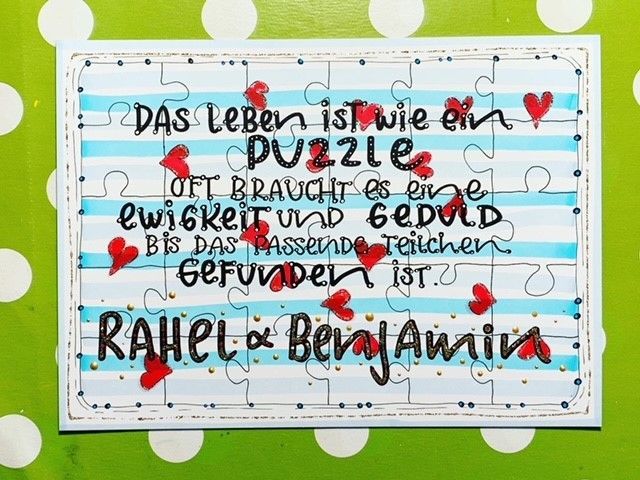 DAS LEBEN IST WIE EIN
PUZZLE
OFT BRAUCHT ES EINE
EWIGKEIT UND GEDULD
BIS DAS PASSENDE TEILCHEN
GEFUNDEN IST.
RAHEL & BENJAMIN